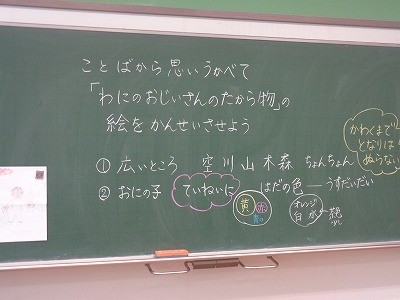 ことばから思いうかべて
「わにのおじいさんのたから物」の
絵をかんせいさせよう
かわくまで
となりは
ぬらない
① 広いところ 空 川 山 木 森 ちょんちょん
② おにの子 ていねいに はだの色 ― うすだいだい
黄 赤
オレンジ
白 水
少し